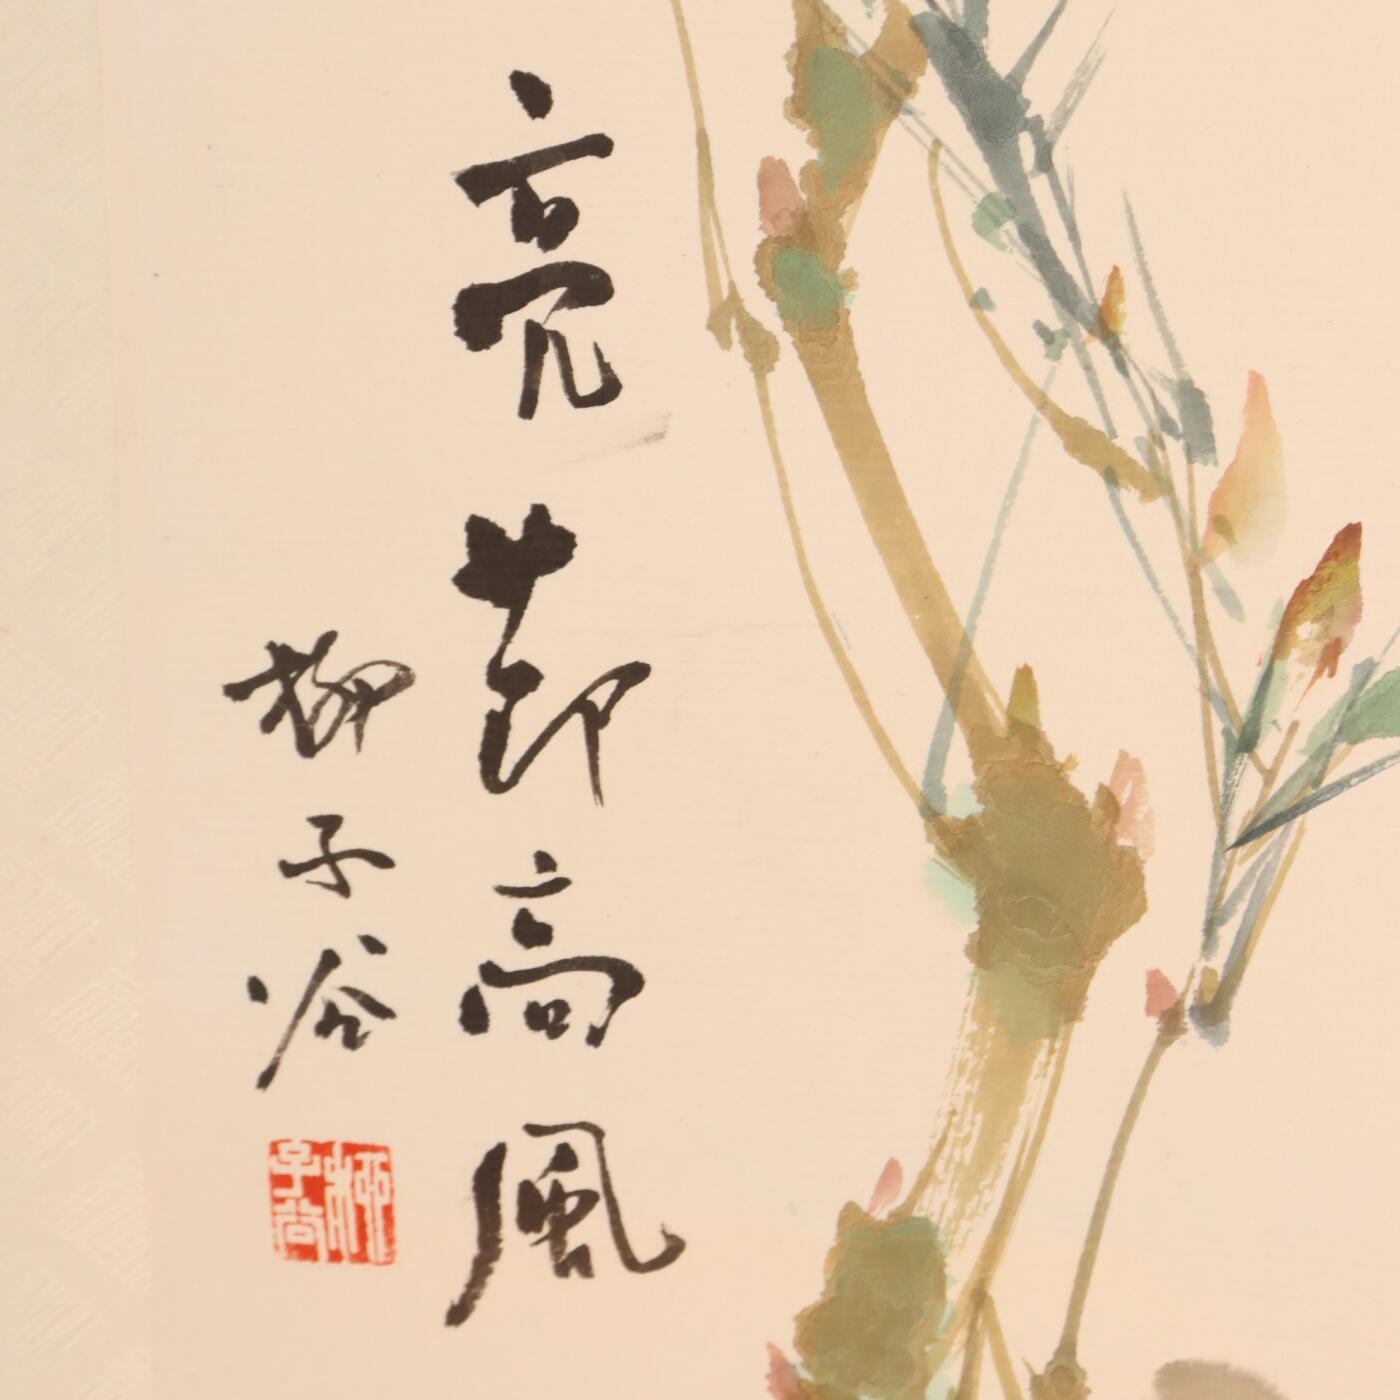 亮节高風
柳子谷
柳子谷